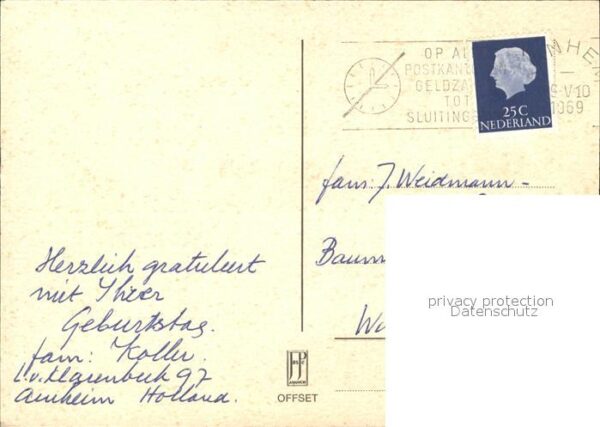 OP AL
POSTKANT
GELDZA
TOT
SLUITING
NHEM
9-V10
1969
25C
NEDERLAND
fam: J. Weidmann -
Baum
Wa
Herzlich gratuliert
mit Ihrer
Geburtstag.
fam: Koller.
L.v.Klarenbeek 97
Arnheim Holland.
OFFSET
privacy protection
Datenschutz